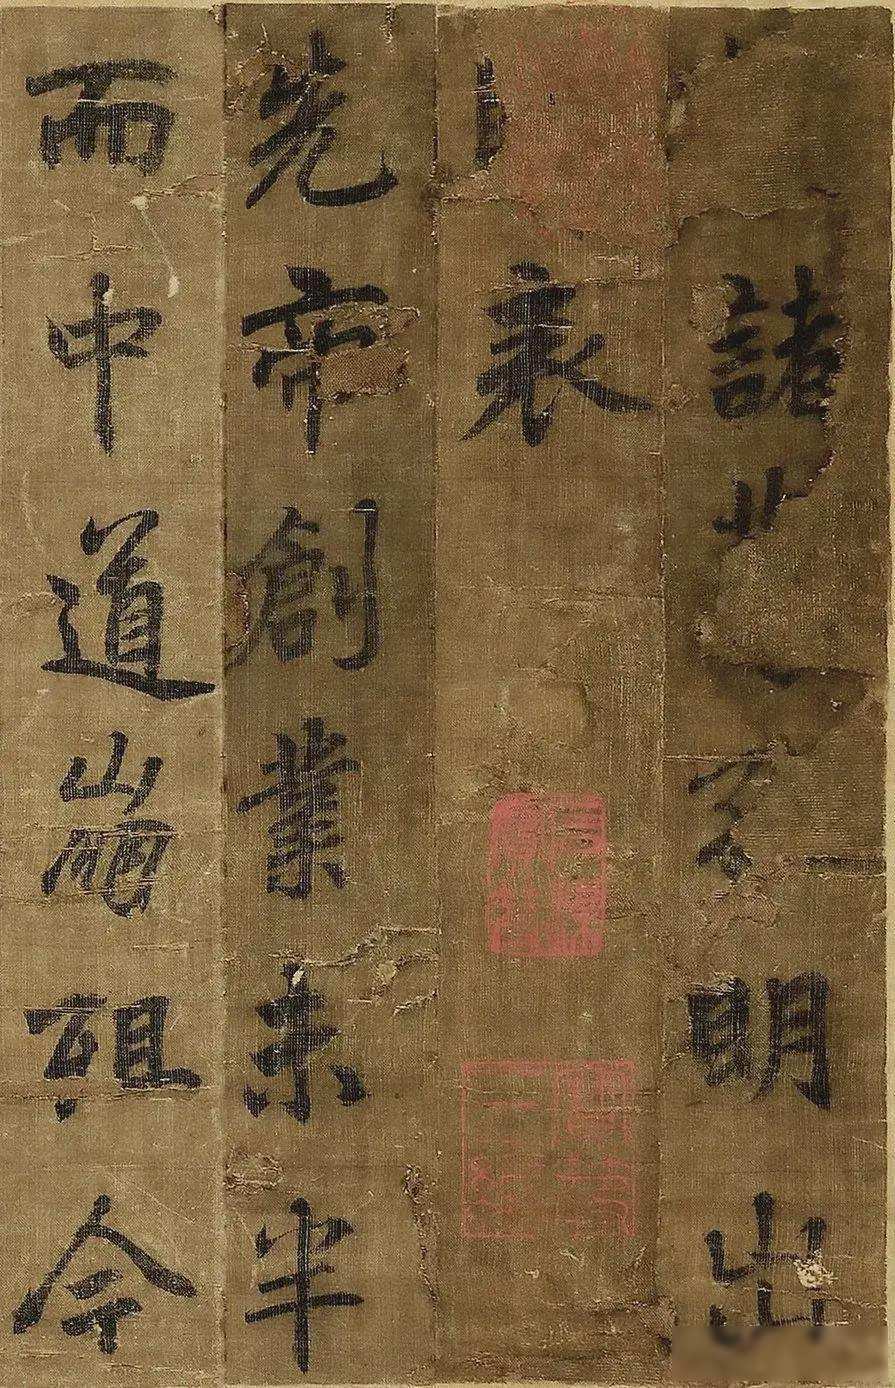 諸明出
表
先帝創業未半
而中道崩殂今